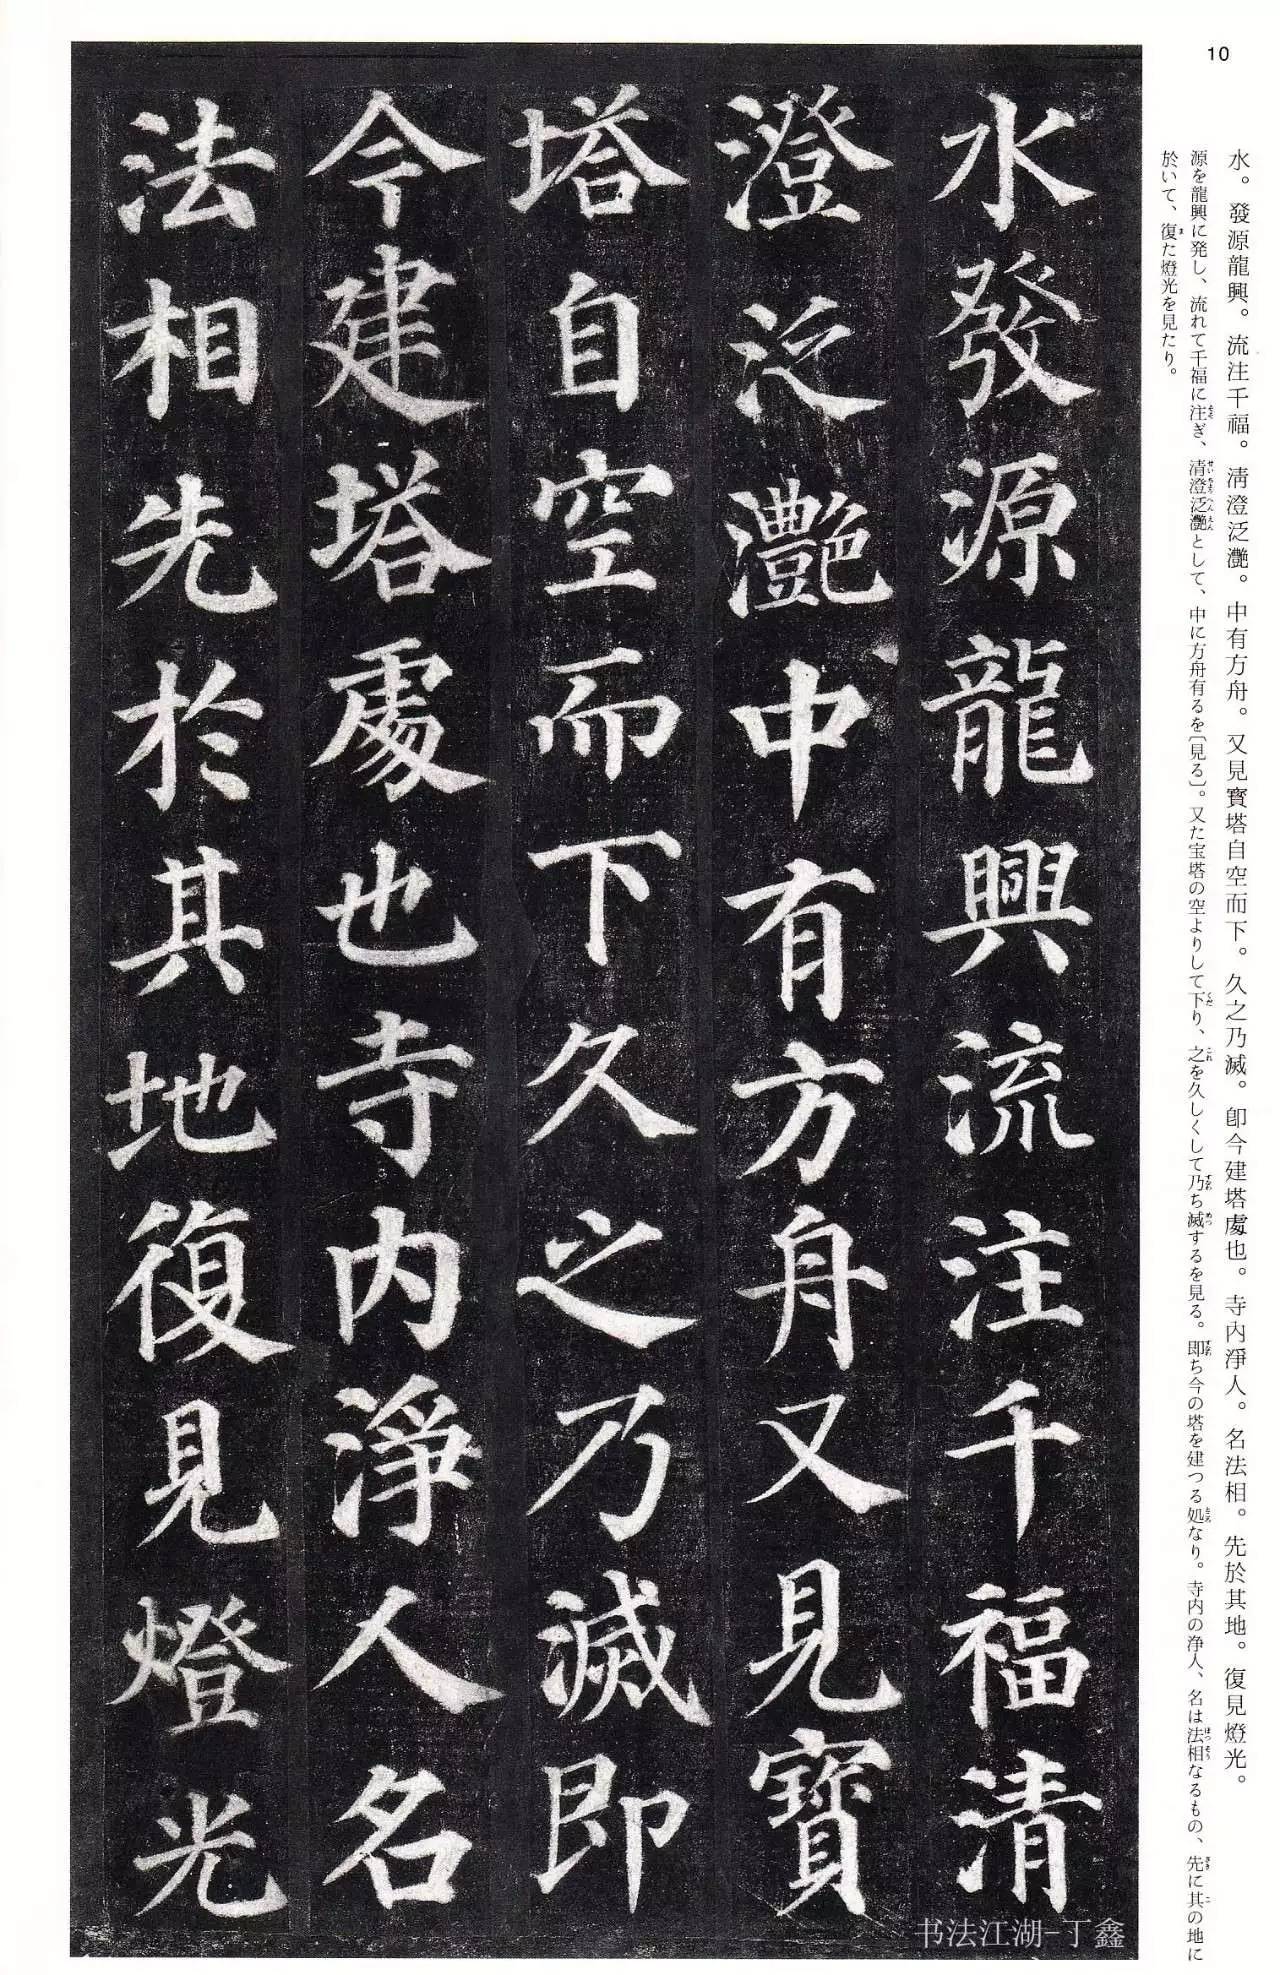 10
水。發源龍興。流注千福。淸澄泛灔。中有方舟。又見寳塔自空而下。久之乃滅。卽今建塔處也。寺内淨人。名法相。先於其地。復見燈光。
源を龍興に発し、流れて千福に注ぎ、清澄泛灔として、中に方舟有るを〔見る〕。又た宝塔の空よりして下り、之を久しくして乃ち滅するを見る。即ち今の塔を建つる処なり。寺内の浄人、名は法相なるもの、先に其の地に
於いて、復た燈光を見たり。
水發源龍興流注千福清
澄泛灔中有方舟又見寶
塔自空而下久之乃滅即
今建塔處也寺内淨人名
法相先於其地復見燈光
书法江湖-丁鑫